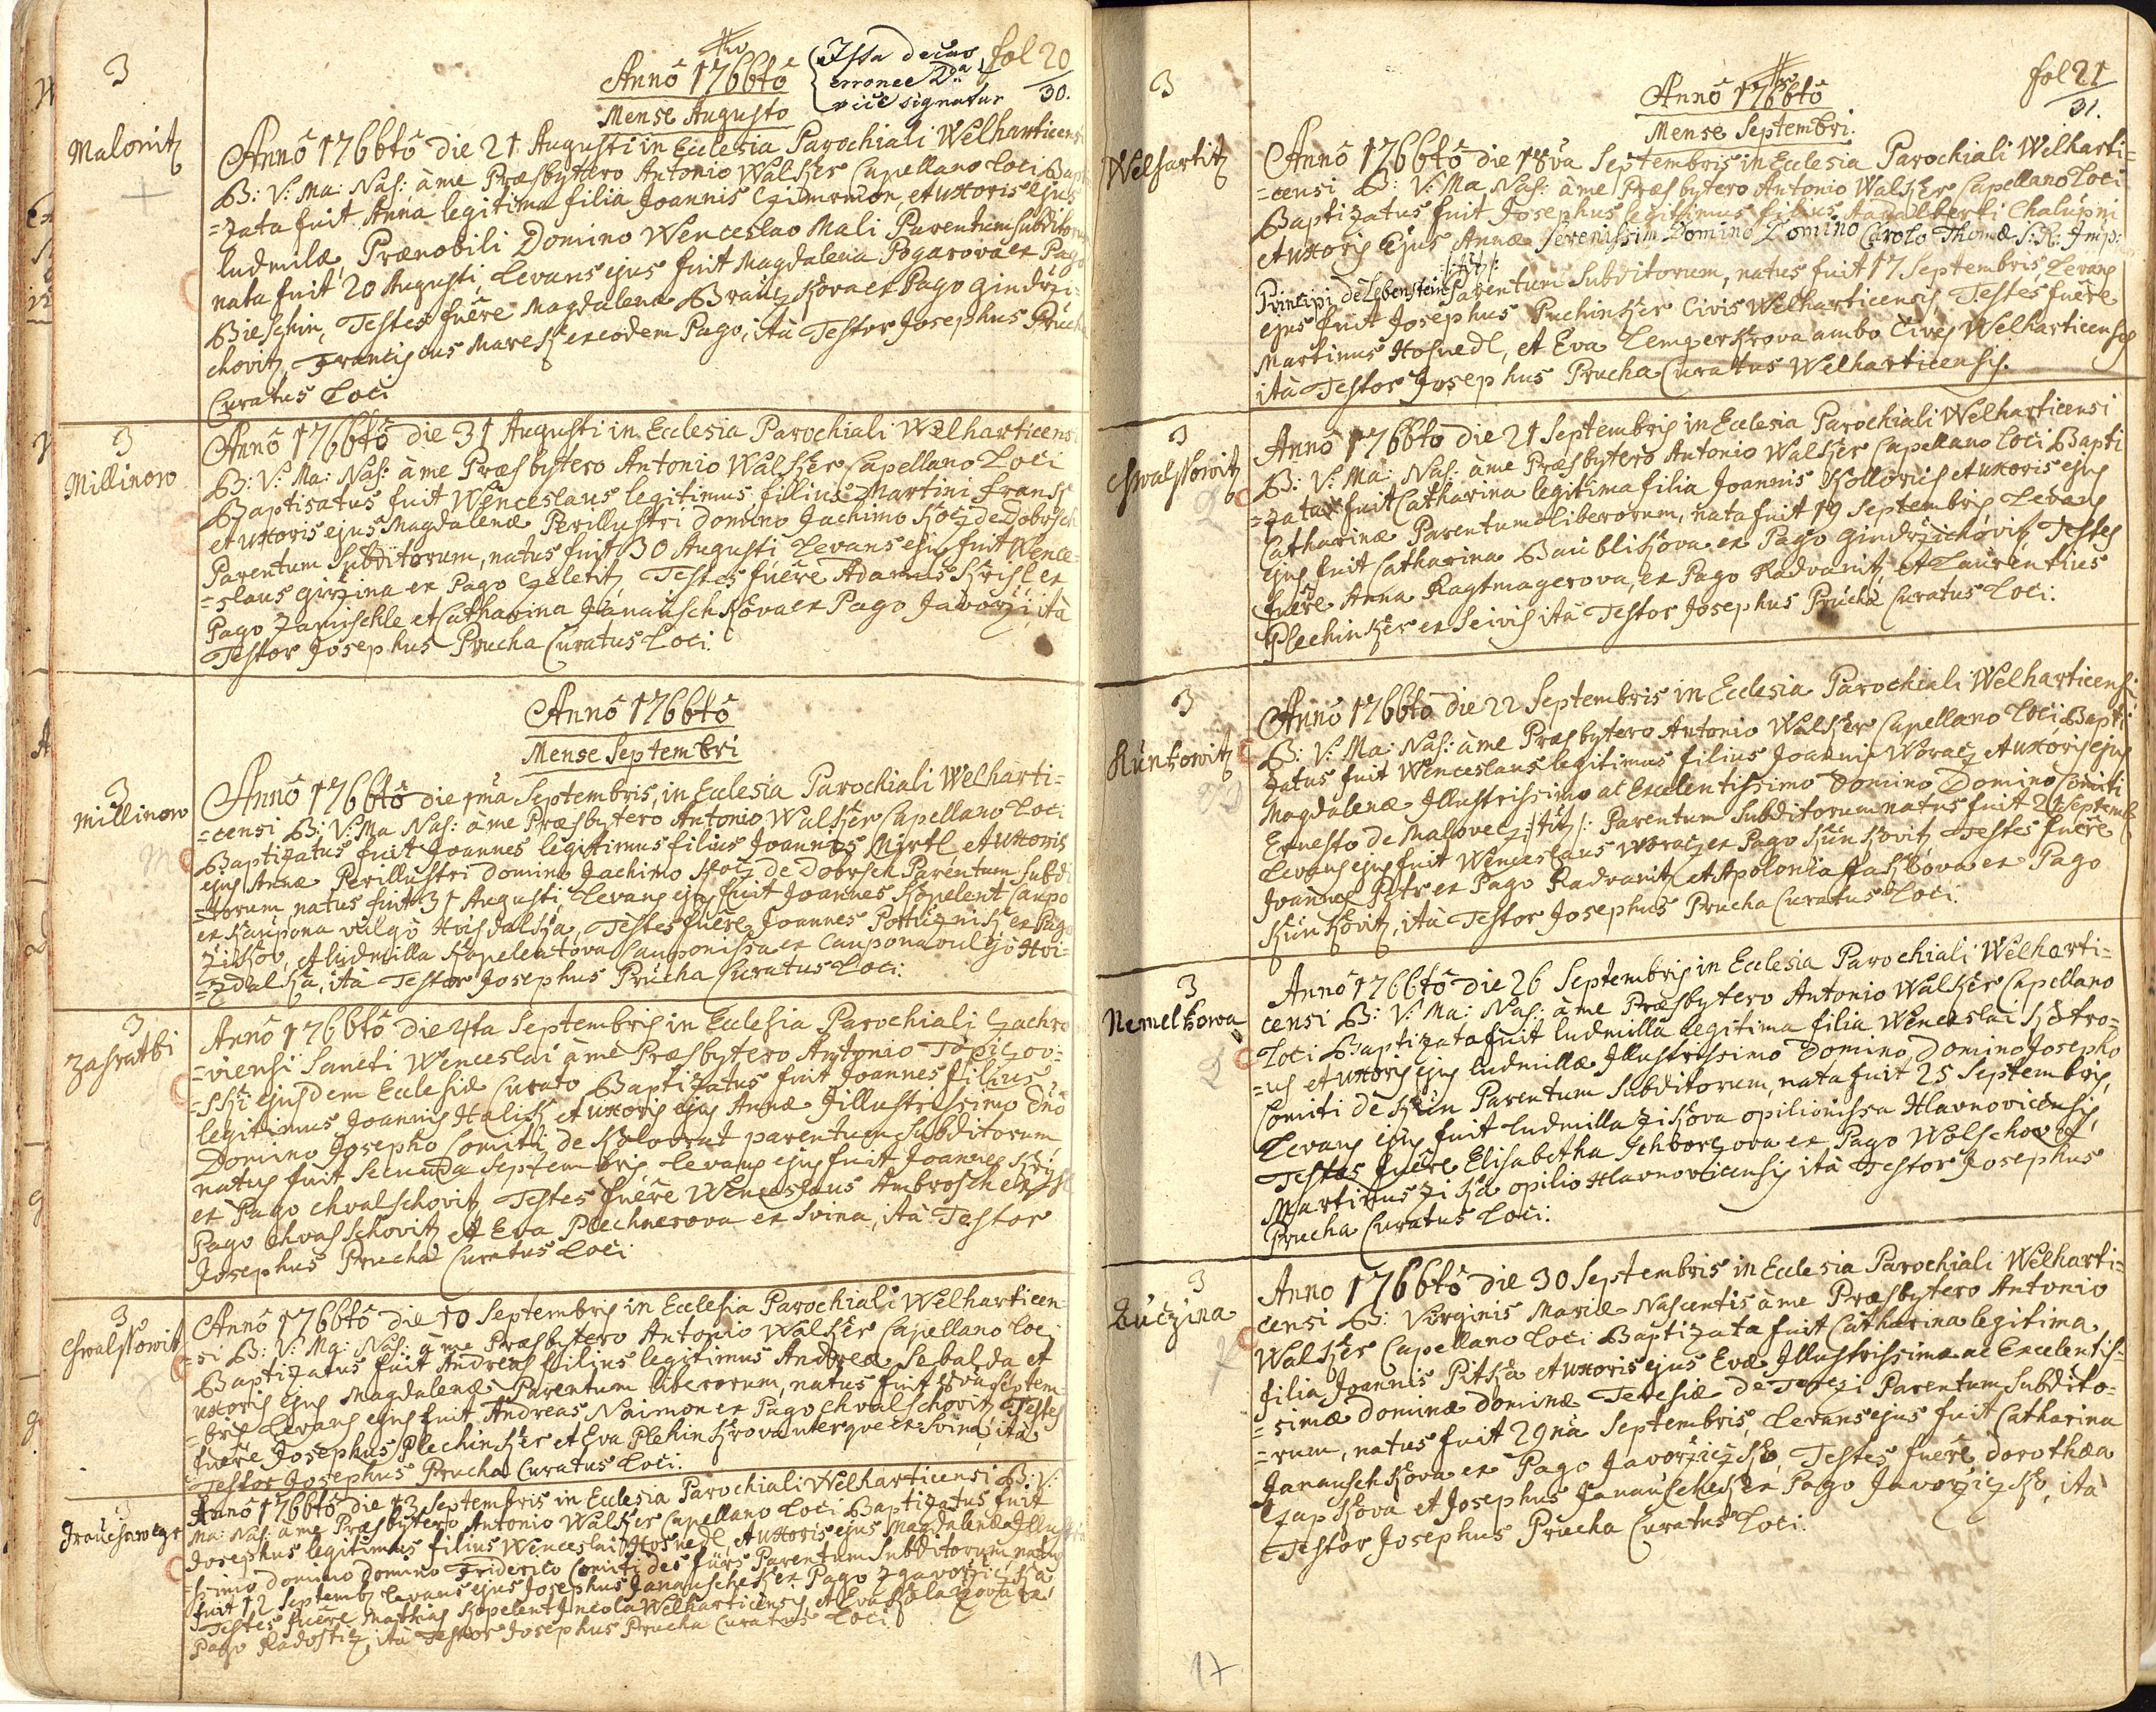 fol 20
30.
Annô 1766tô
Ista decas
erronee 2da
vice signatur
Mense Augusto
3
Malonitz
Annô 1766tô die 21 Augusti in Ecclesia Parochiali Welharticensi
B: V: Ma: Nas: à me Præsbytero Antonio Walkzer Capellano Loci Bapti
=zata fuit Anna legitima filia Joannis et uxoris ejus
Ludmilæ, Prænobili Domino Wenceslao Mali Parentum Subditorum
nata fuit 20 Augusti, Levans ejus fuit Magdalena Pogarova ex Pago
Bieschin, Testes fuêre Magdalena ex Pago Gindrzi=
chovitz, Franciscus Maresch ex eodem Pago, ità Testor Josephus Prucha
Curatus Loci
3
Millinow
Annô 1766tô die 31 Augusti in Ecclesia Parochiali Welharticensi
B: V: Ma: Nas: à me Præsbytero Antonio Walkzer Capellano Loci
Baptisatus fuit Wenceslaus legitimus filius Martini Frank
et uxoris ejus Magdalenæ Perillustri Domino Jachimo Kotz de Dobrsch
Parentum Subditorum, natus fuit 30 Augusti Levans ejus fuit Wence=
=slaus Girzina ex Pago Czeletitz, Testes fuêre Adamus ex
Pago Zamischle et Catharina Janauschkova ex Pago Javorzi, ità
Testor Josephus Prucha Curatus Loci.
Annô 1766tô
Mense Septembri
3
Millinow
Annô 1766tô die 1ma Septembris, in Ecclesia Parochiali Welharti=
=censi B: V: Ma Nas: à me Præsbytero Antonio Walkzer Capellano Loci
Baptizatus fuit Joannes legitimus filius Joannis Mirtl et uxoris
ejus Annæ Perillustri Domino Jachimo Kotz de Dobrsch Parentum Subdi
=torum, natus fuit 31 Augusti Levans ejus fuit Joannes Kopelent Caupo
ex Kaupona vulgò Hvisdalka, Testes fuêre Joannes ex Pago
Zikov, et Ludmilla Kopelentova Cauponissa ex Caupona vulgò Hvi=
=zdalka, ità Testor Josephus Prucha Curatus Loci.
3
Zahratki
Annô 1766tô die 4ta Septembris in Ecclesia Parochiali Czachro
=viensi Sancti Wenceslai à me Præsbytero Antonio Topizov=
=ski ejusdem Ecclesiæ Curato Baptizatus fuit Joannes filius
legitimus Joannis Halik et uxoris ejus Annæ Jillustrissimo Dno
Domino Josepho Comiti de Kolovrat parentum Subditorum
natus fuit Secunda Septembris Levans ejus fuit Joannes
ex Pago Chvalschovitz, Testes fuêre Wenceslaus Ambrosch ex
Pago Chvalschovitz et Eva Plechnerova ex Svina, ità Testor
Josephus Prucha Curatus Loci
3
Chwalssowitz
Annô 1766tô die 10 Septembris in Ecclesia Parochiali Welharticen=
=si B: V: Ma: Nas: à me Præsbytero Antonio Walkzer Capellano Loci
Baptizatus fuit Andreas filius legitimus Andreæ Sebalda et
uxoris ejus Magdalenæ Parentum liberorum, natus fuit 8va Septem=
=bris Levans ejus fuit Andreas Naimon ex Pago Chvalschovitz, Testes
fuêre Josephus Plechinkzer et Eva Plehinkzrova uterque ex Svina, ità
Testor Josephus Prucha Curatus Loci.
3
Annô 1766tô die 13 Septembris in Ecclesia Parochiali Welharticensi B: V:
Ma: Nas: à me Præsbytero Antonio Walkzer Capellano Loci Baptizatus fuit
Josephus legitimus filius Wenceslai Hosnedl, et uxoris ejus Magdalenæ Illustri
=ssimo Domino Domino Friderico Comiti des fürs Parentum Subditorum natus
fuit 12 Septemb: Levans ejus Josephus Janauschek ex Pago
Testes fuêre Mathias Kopelent Incola Welharticensis, et Eva ex
Pago Radostitz, ità Testor Josephus Prucha Curatus Loci
fol 21
31.
Annô 1766tô
Mense Septembri.
3
Welhartitz
Annô 1766tô die 18va Septembris in Ecclesia Parochiali Welharti=
=censi B: V: Ma Nas: à me Præsbytero Antonio Walkzer Capellano Loci
Baptizatus fuit Josephus legitimus filius Aadalberti Chalupni
et uxoris Ejus Annæ Serenissim Domino Domino Carolo Thomæ S: R: Imp:
Principi de Lebenstein /: tit :/ Parentum Subditorum, natus fuit 17 Septembris Levans
ejus fuit Josephus Puchinkzer Civis Welharticensis, Testes fuêre
Martinus Hosnedl, et Eva Lemgerkrova ambo Cives Welharticenses
ità Testor Josephus Prucha Curatus Welharticensis.
3
Chwalssowitz
Annô 1766tô die 21 Septembris in Ecclesia Parochiali Welharticensi
B: V: Ma: Nas: à me Præsbytero Antonio Walkzer Capellano Loci Bapti
=zata fuit Catharina legitima filia Joannis Kollorich et uxoris ejus
Catharinæ Parentum Liberorum, nata fuit 19 Septembris Levans
ejus fuit Catharina Baublikova ex Pago Gindrzichovitz, Testes
fuêre Anna Ragtmagerova, ex Pago Radvanitz, et Laurentius
Plechinkzer ex Seivis ità Testor Josephus Prucha Curatus Loci.
3
Kunkowitz
Annô 1766tô die 22 Septembris in Ecclesia Parochiali Welharticensi
B: V: Ma: Nas: à me Præsbytero Antonio Walkzer Capellano Loci Bapti
zatus fuit Wenceslaus legitimus filius Joannis Woracz et uxoris ejus
Magdalenæ Illustrissimo ac Excelentissimo Domino Domino Comiti
Ernesto de Malovecz /: tit: /: Parentum Subditorum natus fuit 21 Septemb
Levans ejus fuit Wenceslaus Woracz ex Pago Kunkovitz, Testes fuêre
Joannes Petr ex Pago Radvanitz et Apolonia ex Pago
Kunkovitz, ità Testor Josephus Prucha Curatus Loci.
3
Nemelkowa
Annô 1766tô die 26 Septembris in Ecclesia Parochiali Welharti=
censi B: V: Ma: Nas: à me Præsbytero Antonio Walkzer Capellano
Loci Baptizata fuit Ludmilla legitima filia Wenceslai
=us et uxoris ejus Ludmillæ Illustrissimo Domino Domino Josepho
Comiti de Krin Parentum Subditorum, nata fuit 25 Septembris,
Levans ejus fuit Ludmilla Zikova opilionissa Hlavnovicensis,
Testes fuêre Elisabetha Schvarzova ex Pago Wolschov et
Martinus Zika opilio Hlavnovicensis ità Testor Josephus
Prucha Curatus Loci.
3
Luczina
Anno 1766tô die 30 Septembris in Ecclesia Parochiali Welharti=
censi B: Virginis Mariæ Nascentis à me Præsbytero Antonio
Walkzer Capellano Loci Baptizata fuit Catharina legitima
filia Joannis Pitka et uxoris ejus Evæ Illustrissimæ ac Excelentis=
=simæ Dominæ Dominæ Teresiæ de Parentum Subdito=
=rum, natus fuit 29na Septembris, Levans ejus fuit Catharina
Janauschkova ex Pago Javorziczko, Testes fuêre Dorothæa
Czapkova et Josephus Janauschek ex Pago Javorziczko, ità
Testor Josephus Prucha Curatus Loci.
17